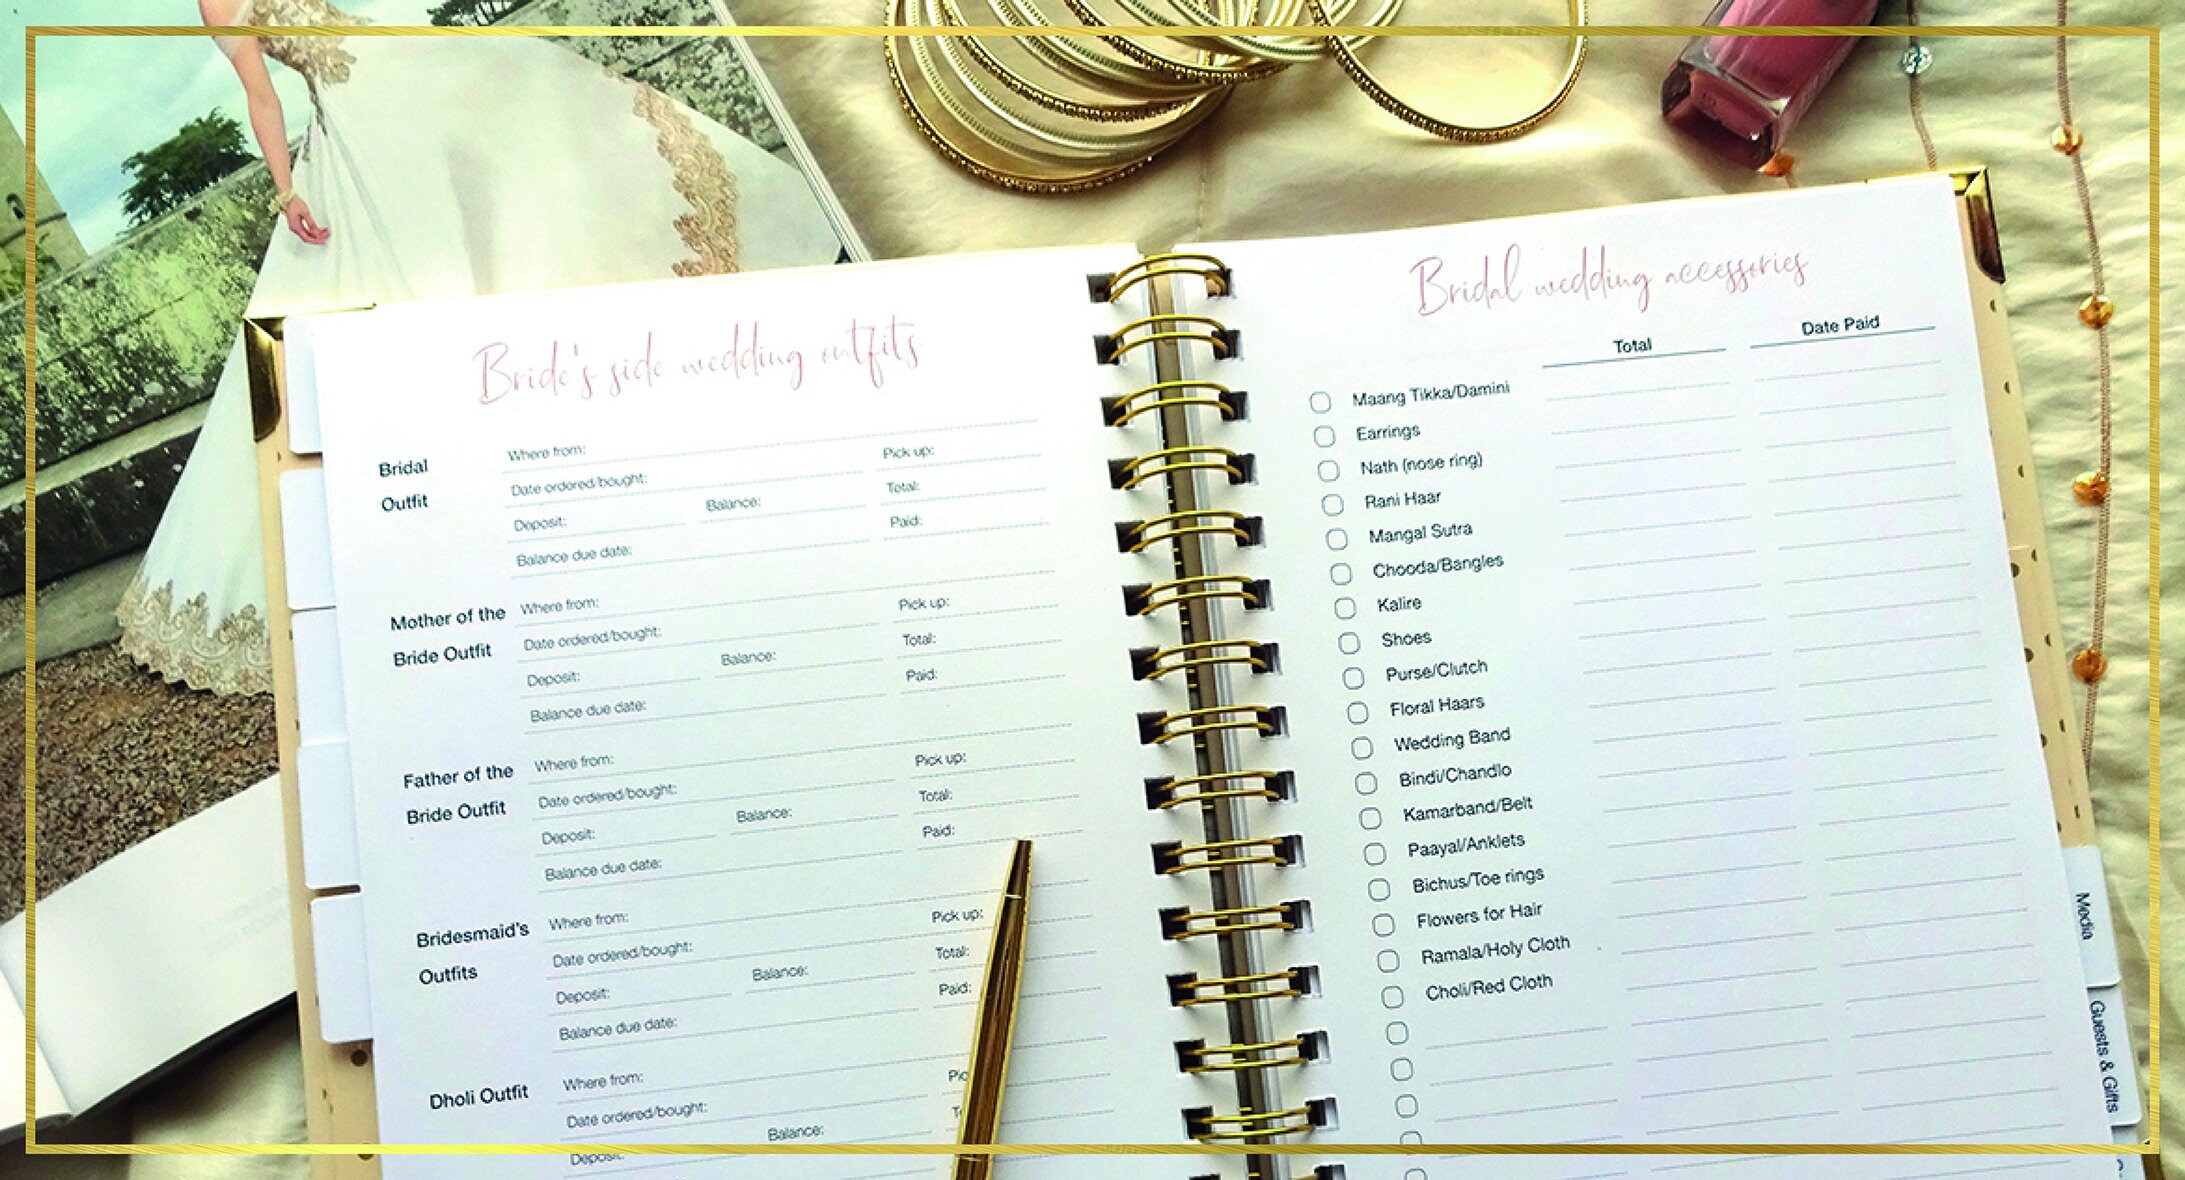 Bride's side wedding outfits
Bridal Outfit
Where from:
Date ordered/bought: Pick up:
Deposit: Balance: Total:
Balance due date: Paid:
Mother of the Bride Outfit
Where from:
Date ordered/bought: Pick up:
Deposit: Balance: Total:
Balance due date: Paid:
Father of the Bride Outfit
Where from:
Date ordered/bought: Pick up:
Deposit: Balance: Total:
Balance due date: Paid:
Bridesmaid's Outfits
Where from:
Date ordered/bought: Pick up:
Deposit: Balance: Total:
Balance due date: Paid:
Dholi Outfit
Where from:
Date ordered/bought:
Deposit: Balance:
Bridal wedding accessories
Total Date Paid
Maang Tikka/Damini
Earrings
Nath (nose ring)
Rani Haar
Mangal Sutra
Chooda/Bangles
Kalire
Shoes
Purse/Clutch
Floral Haars
Wedding Band
Bindi/Chandlo
Kamarband/Belt
Paayal/Anklets
Bichus/Toe rings
Flowers for Hair
Ramala/Holy Cloth
Choli/Red Cloth
Media
Guests & Gifts